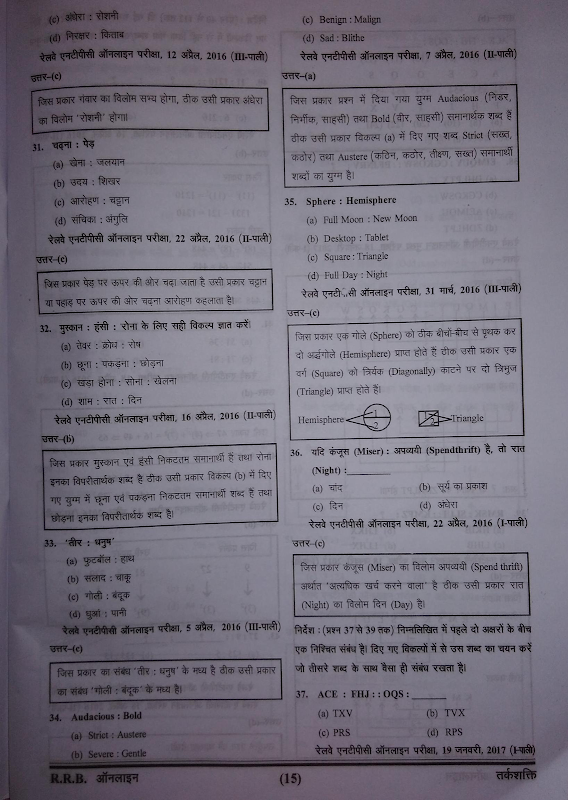 (c) अंधेरा : रोशनी
(d) निरक्षर : किताब
रेलवे एनटीपीसी ऑनलाइन परीक्षा, 12 अप्रैल, 2016 (III-पाली)
उत्तर–(c)
जिस प्रकार गंवार का विलोम सभ्य होगा, ठीक उसी प्रकार अंधेरा
का विलोम 'रोशनी' होगा।
31. चढ़ना : पेड़
(a) खेना : जलयान
(b) उदय : शिखर
(c) आरोहण : चट्टान
(d) संचिका : अंगुलि
रेलवे एनटीपीसी ऑनलाइन परीक्षा, 22 अप्रैल, 2016 (II-पाली)
उत्तर–(c)
जिस प्रकार पेड़ पर ऊपर की ओर चढ़ा जाता है उसी प्रकार चट्टान
या पहाड़ पर ऊपर की ओर चढ़ना आरोहण कहलाता है।
32. मुस्कान : हंसी : रोना के लिए सही विकल्प ज्ञात करें।
(a) तेवर : क्रोध : रोष
(b) छूना : पकड़ना : छोड़ना
(c) खड़ा होना : सोना : खेलना
(d) शाम : रात : दिन
रेलवे एनटीपीसी ऑनलाइन परीक्षा, 16 अप्रैल, 2016 (II-पाली)
उत्तर–(b)
जिस प्रकार मुस्कान एवं हंसी निकटतम समानार्थी हैं तथा रोना
इनका विपरीतार्थक शब्द है ठीक उसी प्रकार विकल्प (b) में दिए
गए युग्म में छूना एवं पकड़ना निकटतम समानार्थी शब्द हैं तथा
छोड़ना इनका विपरीतार्थक शब्द है।
33. 'तीर : धनुष'
(a) फुटबॉल : हाथ
(b) सलाद : चाकू
(c) गोली : बंदूक
(d) धुआं : पानी
रेलवे एनटीपीसी ऑनलाइन परीक्षा, 5 अप्रैल, 2016 (III-पाली)
उत्तर–(c)
जिस प्रकार का संबंध 'तीर : धनुष' के मध्य है ठीक उसी प्रकार
का संबंध 'गोली : बंदूक' के मध्य है।
34. Audacious : Bold
(a) Strict : Austere
(b) Severe : Gentle
(c) Benign : Malign
(d) Sad : Blithe
रेलवे एनटीपीसी ऑनलाइन परीक्षा, 7 अप्रैल, 2016 (II-पाली)
उत्तर–(a)
जिस प्रकार प्रश्न में दिया गया युग्म Audacious (निडर,
निर्भीक, साहसी) तथा Bold (वीर, साहसी) समानार्थक शब्द हैं
ठीक उसी प्रकार विकल्प (a) में दिए गए शब्द Strict (सख्त,
कठोर) तथा Austere (कठिन, कठोर, तीक्ष्ण, सख्त) समानार्थी
शब्दों का युग्म है।
35. Sphere : Hemisphere
(a) Full Moon : New Moon
(b) Desktop : Tablet
(c) Square : Triangle
(d) Full Day : Night
रेलवे ऑनलाइन परीक्षा, 31 मार्च, 2016 (III-पाली)
उत्तर–(c)
जिस प्रकार एक गोले (Sphere) को ठीक बीचों-बीच से पृथक कर
दो अर्द्धगोले (Hemisphere) प्राप्त होते हैं ठीक उसी प्रकार एक
वर्ग (Square) को तिर्यक (Diagonally) काटने पर दो त्रिभुज
(Triangle) प्राप्त होते हैं।
Hemisphere 1 2 1 2 Triangle
36. यदि कंजूस (Miser) : अपव्ययी (Spendthrift) है, तो रात
(Night) :________
(a) चांद (b) सूर्य का प्रकाश
(c) दिन (d) अंधेरा
रेलवे एनटीपीसी ऑनलाइन परीक्षा, 22 अप्रैल, 2016 (I-पाली)
उत्तर–(c)
जिस प्रकार कंजूस (Miser) का विलोम अपव्ययी (Spend thrift)
अर्थात 'अत्यधिक खर्च करने वाला' है ठीक उसी प्रकार रात
(Night) का विलोम दिन (Day) है।
निर्देश : (प्रश्न 37 से 39 तक) निम्नलिखित में पहले दो अक्षरों के बीच
एक निश्चित संबंध है। दिए गए विकल्पों में से उस शब्द का चयन करें
जो तीसरे शब्द के साथ वैसा ही संबंध रखता है।
37. ACE : FHJ : : OQS : ______
(a) TXV (b) TVX
(c) PRS (d) RPS
रेलवे एनटीपीसी ऑनलाइन परीक्षा, 19 जनवरी, 2017 (I-पाली)
R.R.B. ऑनलाइन (15) तर्कशक्ति